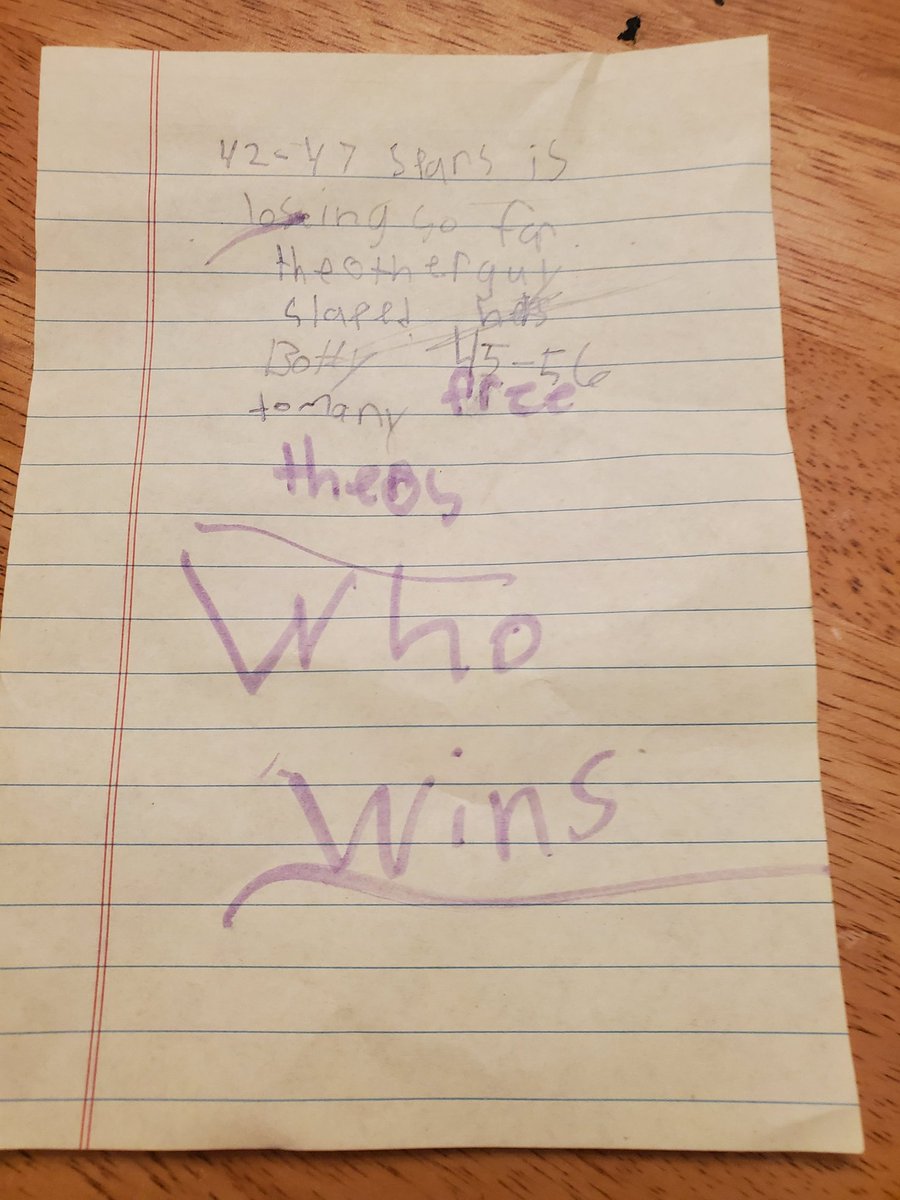 42-47 spars is
losing so far
the other guy
slaped his
Botty 45-56
to many free
theos
Who
wins